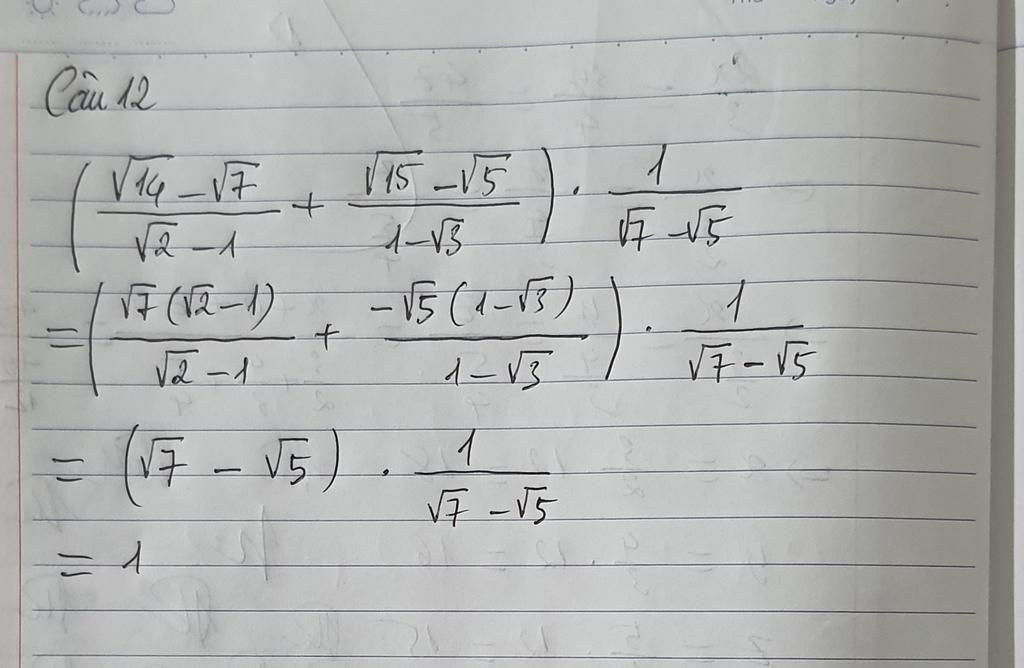 Câu 12
(\frac{\sqrt{14} - \sqrt{7}}{\sqrt{2} - 1} + \frac{\sqrt{15} - \sqrt{5}}{1 - \sqrt{3}}) \cdot \frac{1}{\sqrt{7} - \sqrt{5}}
= (\frac{\sqrt{7}(\sqrt{2} - 1)}{\sqrt{2} - 1} + \frac{-\sqrt{5}(1 - \sqrt{3})}{1 - \sqrt{3}}) \cdot \frac{1}{\sqrt{7} - \sqrt{5}}
= (\sqrt{7} - \sqrt{5}) \cdot \frac{1}{\sqrt{7} - \sqrt{5}}
= 1